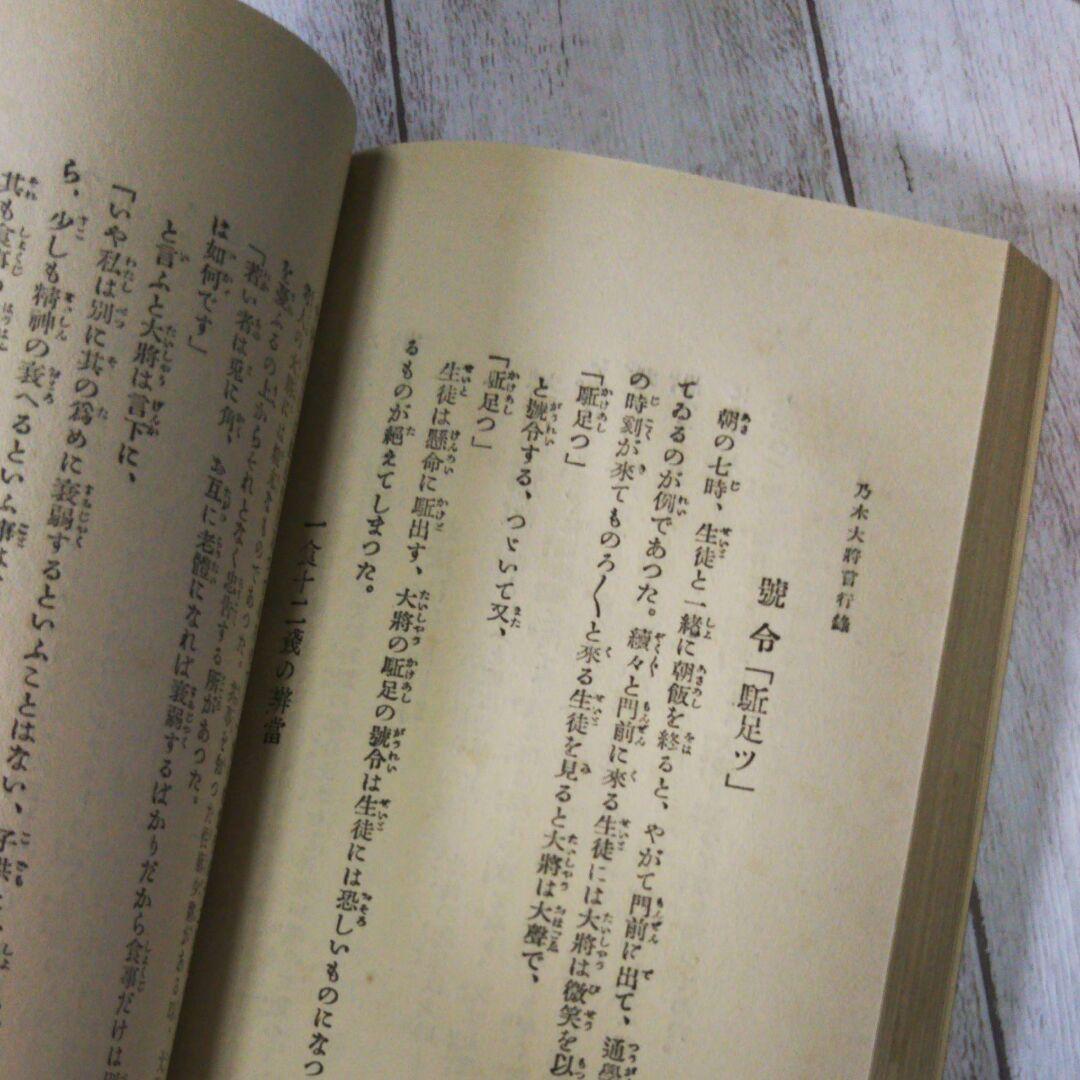 乃木大將言行錄
號令「駈足ツ」
朝の七時、生徒と一緒に朝飯を終ると、やがて門前に出て、通學
てゐるのが例であつた。續々と門前に來る生徒には大將は微笑を以
の時刻が來てものろ〱と來る生徒を見ると大將は大聲で、
「駈足つ」
と號令する、つゞいて又、
「駈足つ」
生徒は懸命に駈出す、大將の駈足の號令は生徒には恐しいものになつ
るものが絕えてしまつた。
一食十二錢の辨當
「若い者は兎に角、お互に老體になれば衰弱するばかりだから食事だけは
は如何です」
と言ふと大將は言下に、
「いや私は別に其の爲めに衰弱するといふことはない、子供
ら、少しも精神の衰へるといふ事は
其も食事